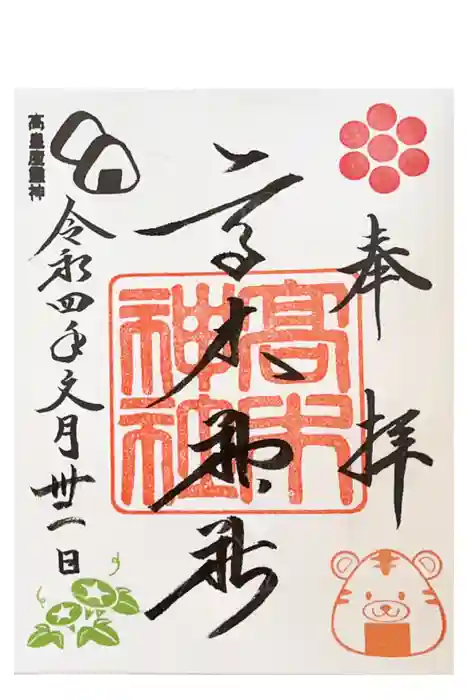 奉拝
高木神社
高木
神社
高皇産靈神
令和四年文月卅一日